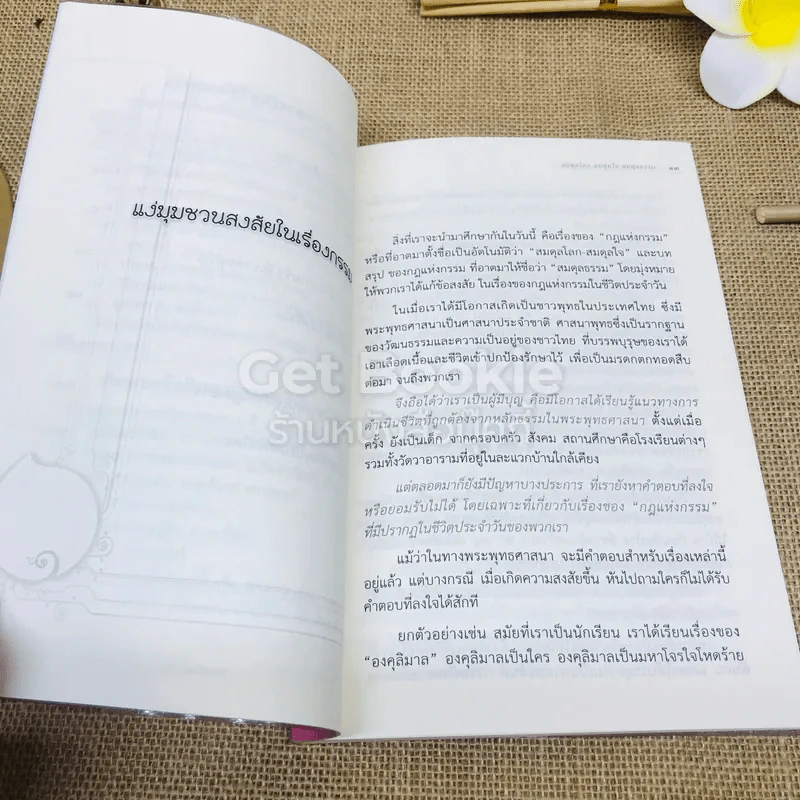 แง่มุมชวนสงสัยในเรื่องกรรม
สมดุลโลก สมดุลใจ สมดุลธรรม ๑๓
สิ่งที่เราจะนำมาศึกษากันในวันนี้ คือเรื่องของ “กฎแห่งกรรม”
หรือที่อาตมาตั้งชื่อเป็นอัตโนมัติว่า “สมดุลโลก-สมดุลใจ” และบท
สรุป ของกฎแห่งกรรม ที่อาตมาให้ชื่อว่า “สมดุลธรรม” โดยมุ่งหมาย
ให้พวกเราได้แก้ข้อสงสัย ในเรื่องของกฎแห่งกรรมในชีวิตประจำวัน
ในเมื่อเราได้มีโอกาสเกิดเป็นชาวพุทธในประเทศไทย ซึ่งมี
พระพุทธศาสนาเป็นศาสนาประจำชาติ ศาสนาพุทธซึ่งเป็นรากฐาน
ของวัฒนธรรมและความเป็นอยู่ของชาวไทย ที่บรรพบุรุษของเราได้
เอาเลือดเนื้อและชีวิตเข้าปกป้องรักษาไว้ เพื่อเป็นมรดกตกทอดสืบ
ต่อมา จนถึงพวกเรา
Get Bookie
จึงถือได้ว่าเราเป็นผู้มีบุญ คือมีโอกาสได้เรียนรู้แนวทางการ
ดำเนินชีวิตที่ถูกต้องจากหลักธรรมในพระพุทธศาสนา ตั้งแต่เมื่อ
ครั้ง ยังเป็นเด็ก จากครอบครัว สังคม สถานศึกษาคือโรงเรียนต่างๆ
รวมทั้งวัดวาอารามที่อยู่ในละแวกบ้านใกล้เคียง
แต่ตลอดมาก็ยังมีปัญหาบางประการ ที่เรายังหาคำตอบที่ลงใจ
หรือยอมรับไม่ได้ โดยเฉพาะที่เกี่ยวกับเรื่องของ “กฎแห่งกรรม”
ที่มีปรากฏในชีวิตประจำวันของพวกเรา
แม้ว่าในทางพระพุทธศาสนา จะมีคำตอบสำหรับเรื่องเหล่านี้
อยู่แล้ว แต่บางกรณี เมื่อเกิดความสงสัยขึ้น หันไปถามใครก็ไม่ได้รับ
คำตอบที่ลงใจได้สักที
ยกตัวอย่างเช่น สมัยที่เราเป็นนักเรียน เราได้เรียนเรื่องของ
“องคุลิมาล” องคุลิมาลเป็นใคร องคุลิมาลเป็นมหาโจรใจโหดร้าย